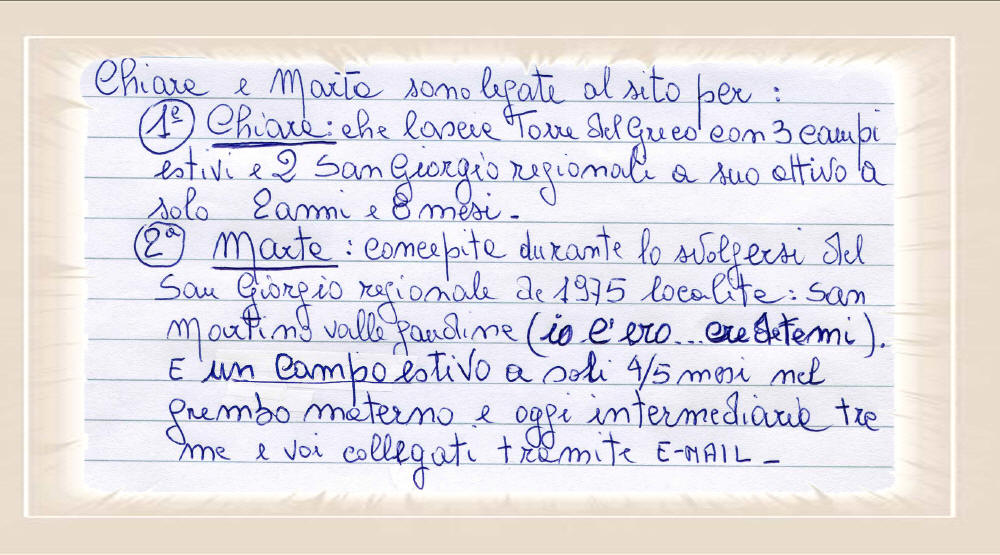 Chiara e Marta sono legate al sito per :
1ª Chiara: che lascia Torre del Greco con 3 campi
estivi e 2 San Giorgio regionali a suo attivo a
solo 2 anni e 8 mesi -
2ª Marta : concepita durante lo svolgersi del
San Giorgio regionale de 1975 località: San
Martino valle caudina (io c'ero... credetemi).
E un campo estivo a soli 4/5 mesi nel
grembo materno e oggi intermediaria tra
me e voi collegati tramite E-MAIL -